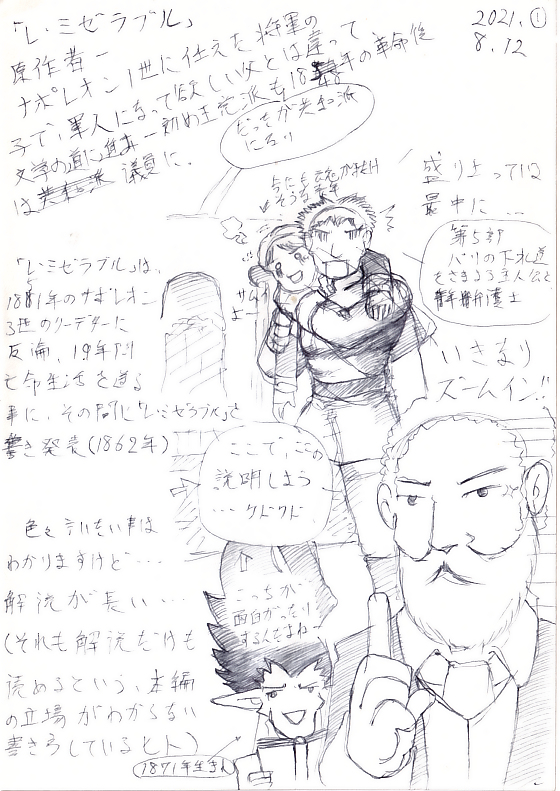 「レ・ミゼラブル」
原作者ー
ナポレオン1世に仕えた将軍の
子で、軍人になって欲しい父とは違って
文学の道に進む 初め王党派も1848年の革命後
は 議員に.
だっちが共和派
になり
2021.①
8.12
今にも
そうな青年
盛り上っては
最中に…
第5部
パリの下水道
をさまよう主人公と
弁護士
サムイ
よー
いきなり
ズームイン!!
「レ・ミゼラブル」は、
1851年のナポレオン
3世のクーデターに
反論、19年だけ
亡命生活を送る
事に、その間に「レ・ミゼラブル」を
書き発表(1862年)
ここで、この
説明しよう
…クドクド
色々言いたい事は
わかりますけど…
解説が長い…
(それも解説だけも
読めるという、本編
の立場がわからない
書き方しているヒト)
こっちが
面白がったり
するんだよね〜
1871年生まれ